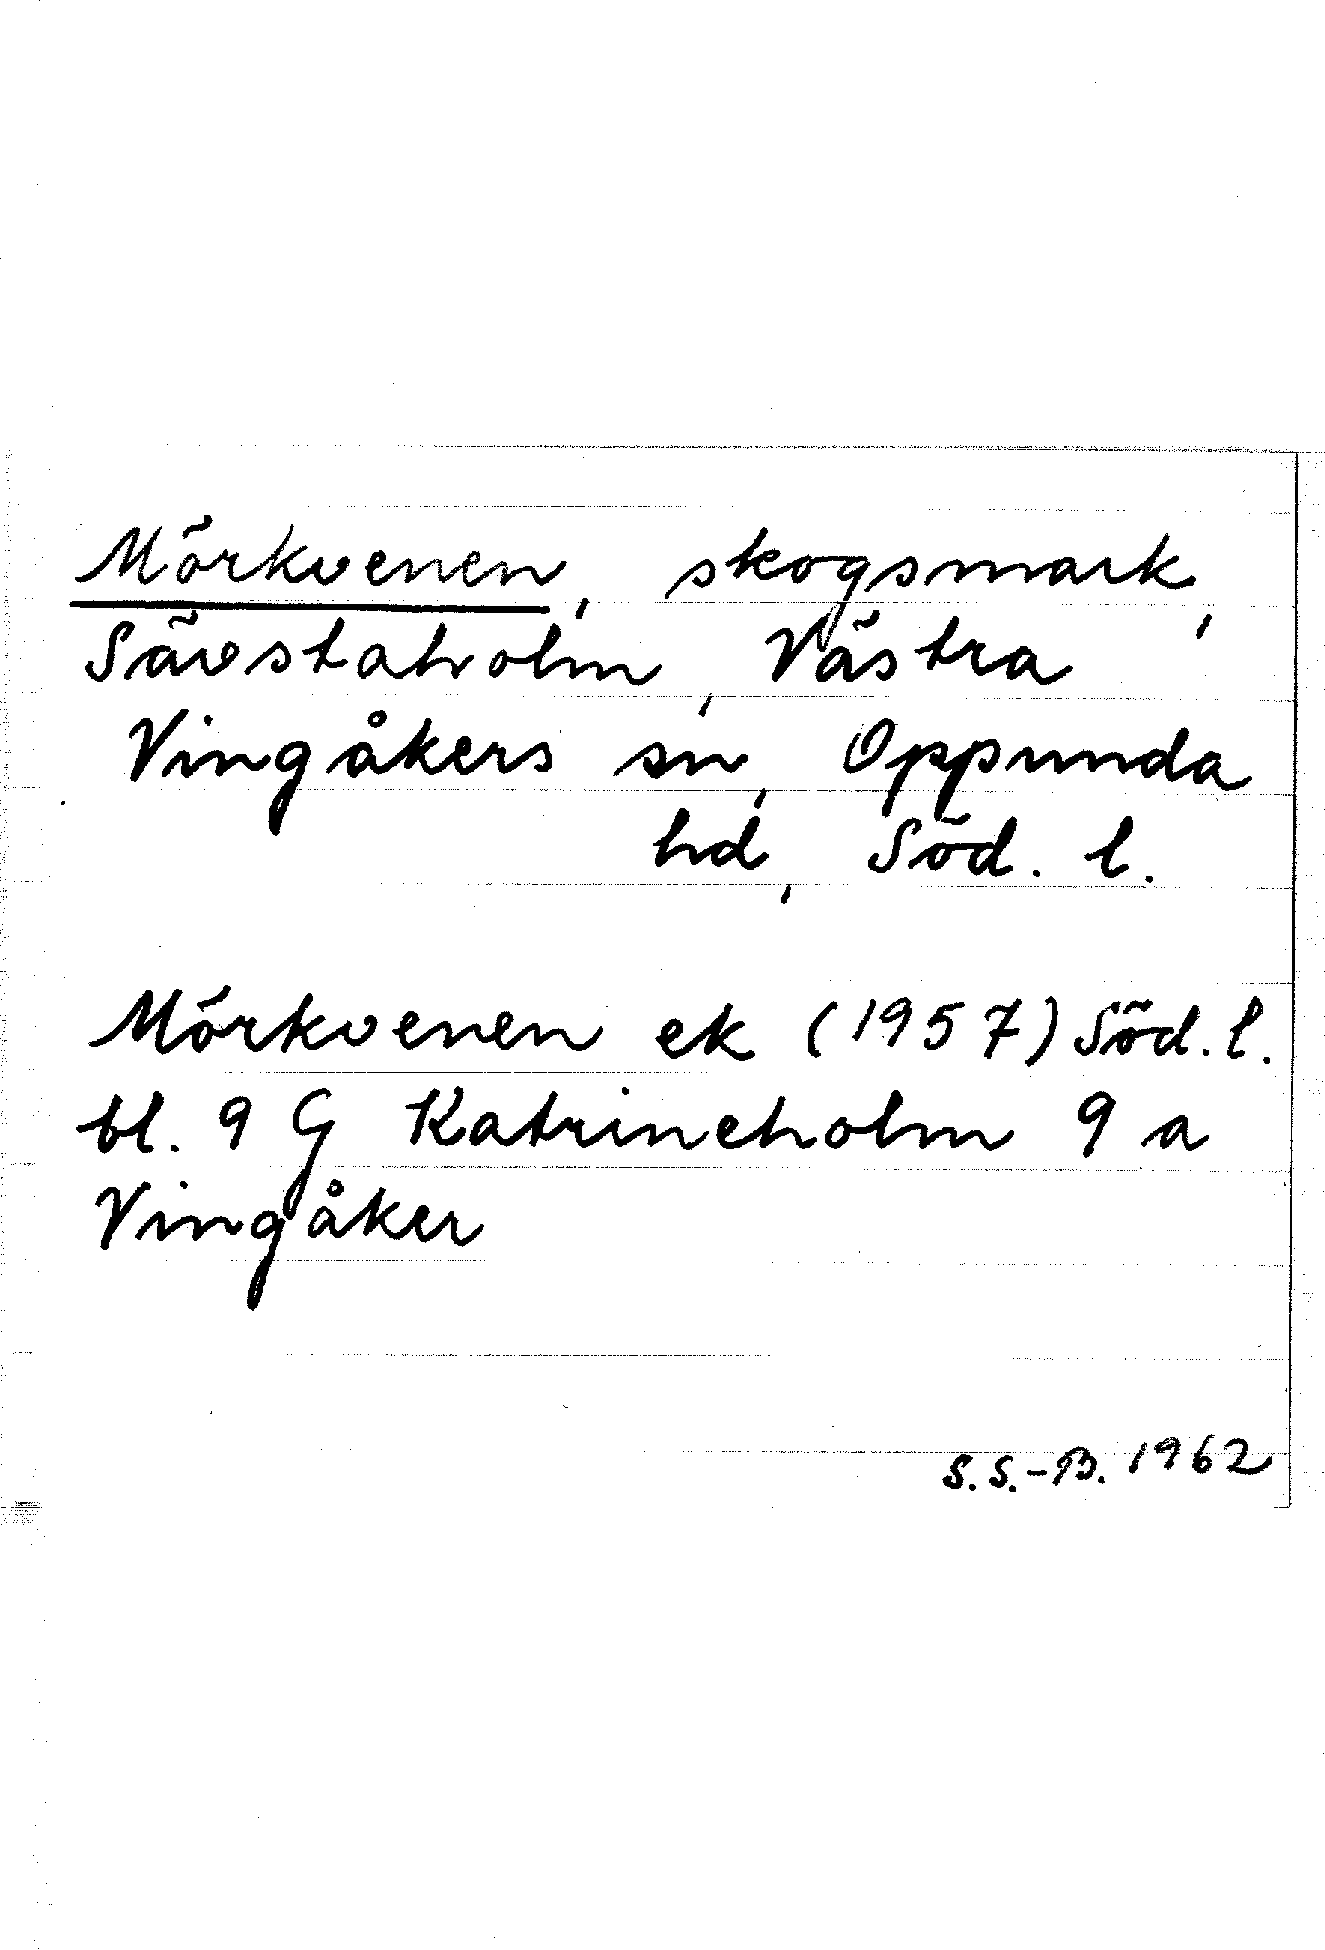 Mörkvenen, skogsmark,
Sävstaholm, Västra
Vingåkers sn, Oppunda
hd, Söd. l.
Mörkvenen ek (1957) Söd. l.
bl. 9 G Katrineholm 9 a
Vingåker
S. S.-B. 1962